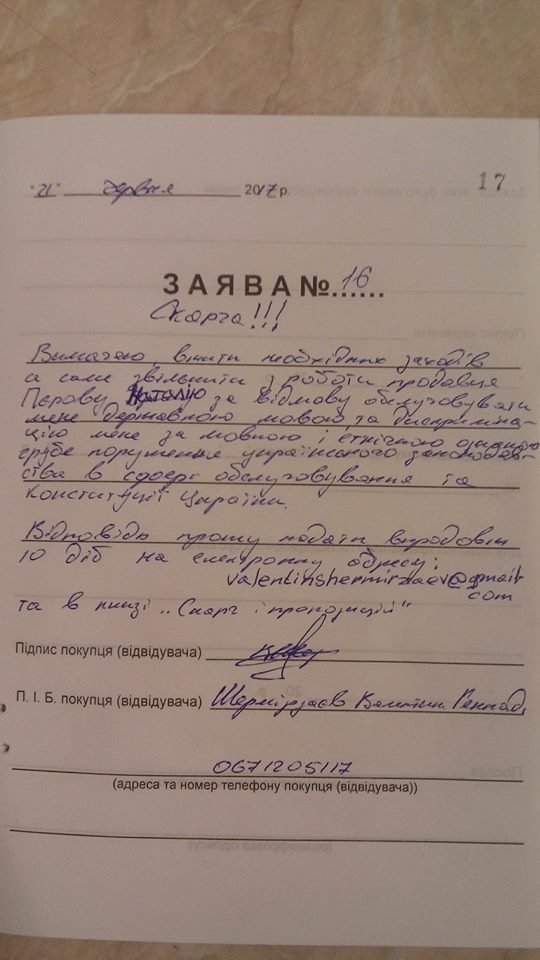 17
"21" червня 2017 р.
ЗАЯВА №16......
Скарга!!!
Вимагаю, вжити необхідних заходів
а саме звільнити з роботи продавця
Перову Наталію за відмову обслуговувати
мене державною мовою, за дискриміна-
цію мене за мовною і етнічною ознакою
грубе порушення українського законодав-
ства в сфері обслуговування та
Конституції України.
Відповідь прошу надати впродовж
10 діб на електронну адресу:
valentinshermirzaev@gmail
com
та в книзі „Скарг і пропозицій"
Підпис покупця (відвідувача)
П. І. Б. покупця (відвідувача) Шермірзаєв Валентин Геннад.
0671205117
(адреса та номер телефону покупця (відвідувача))